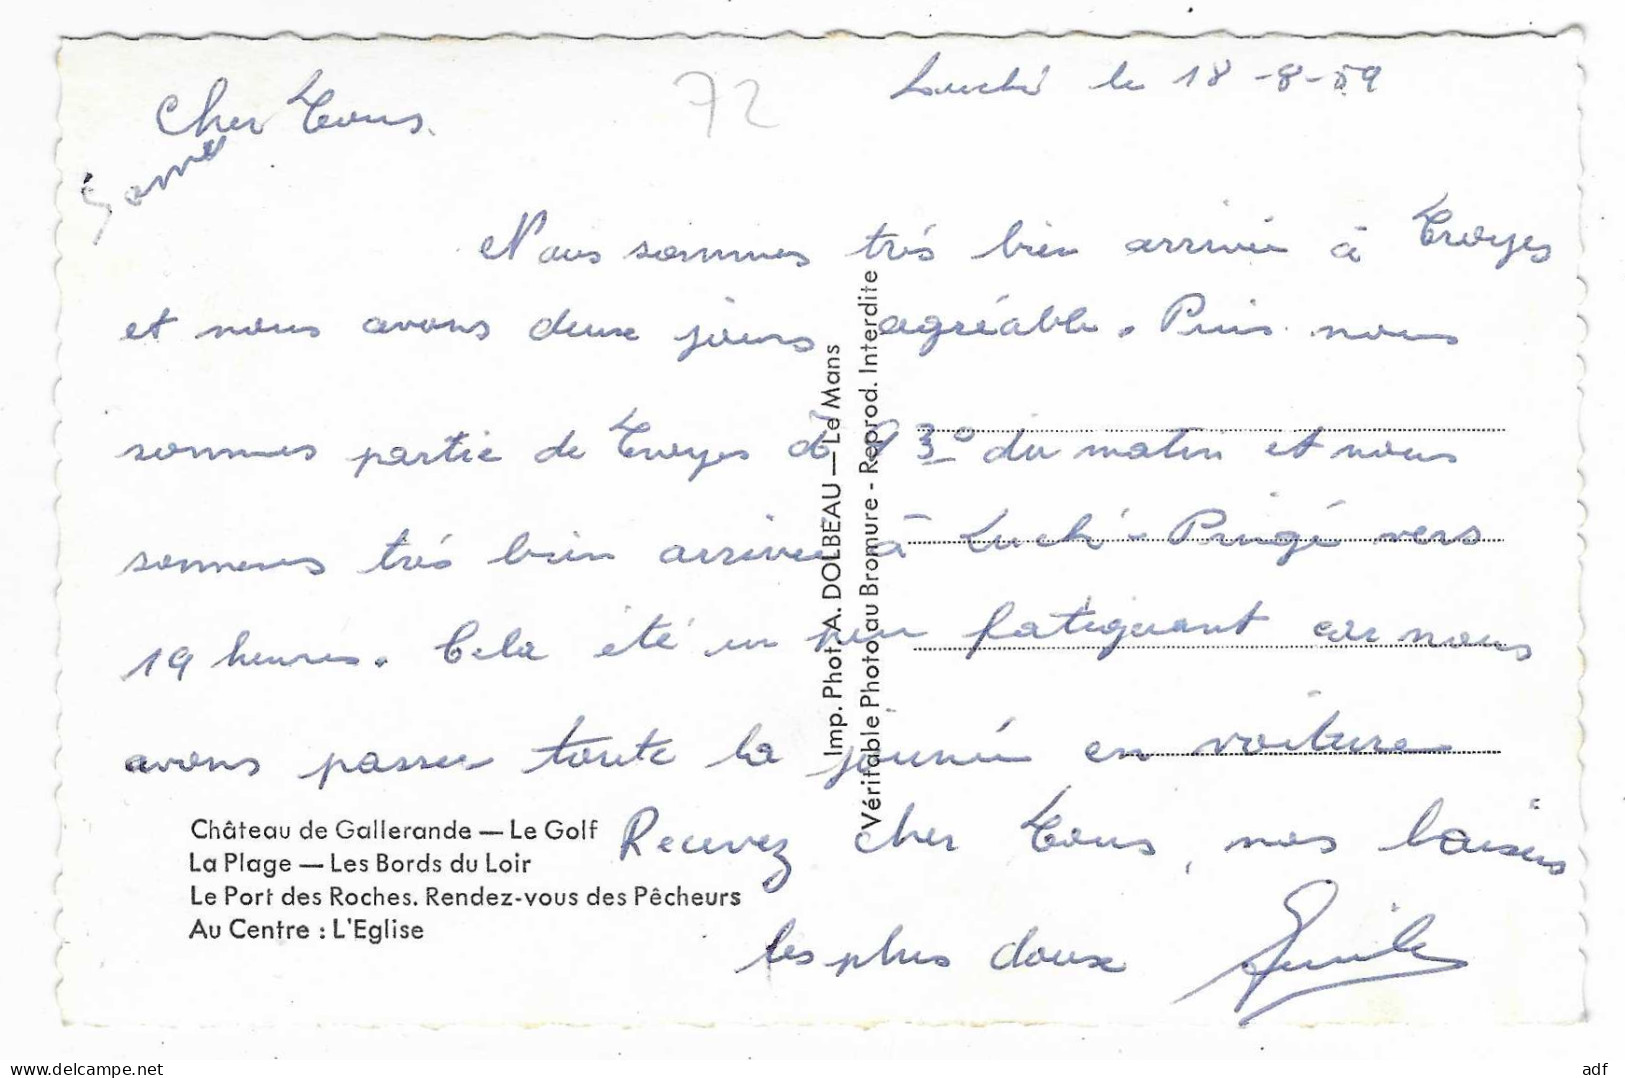 72
Luché le 18-8-59
Cher Tous.
Nous sommes très bien arrivée à Troyes
et nous avons deux jours agréable. Puis nous
sommes partie de Troyes à 9 30 du matin et nous
sommes très bien arrivée à Luché-Pringé vers
19 heures. Cela été un peu fatiguant car nous
avons passer toute la journée en voiture
Recevez cher Tous, nos baisers
les plus doux
Château de Gallerande — Le Golf
La Plage — Les Bords du Loir
Le Port des Roches. Rendez-vous des Pêcheurs
Au Centre : L'Eglise
Imp. Phot. A. DOLBEAU — Le Mans
Véritable Photo au Bromure - Reprod. Interdite
www.delcampe.net
adf